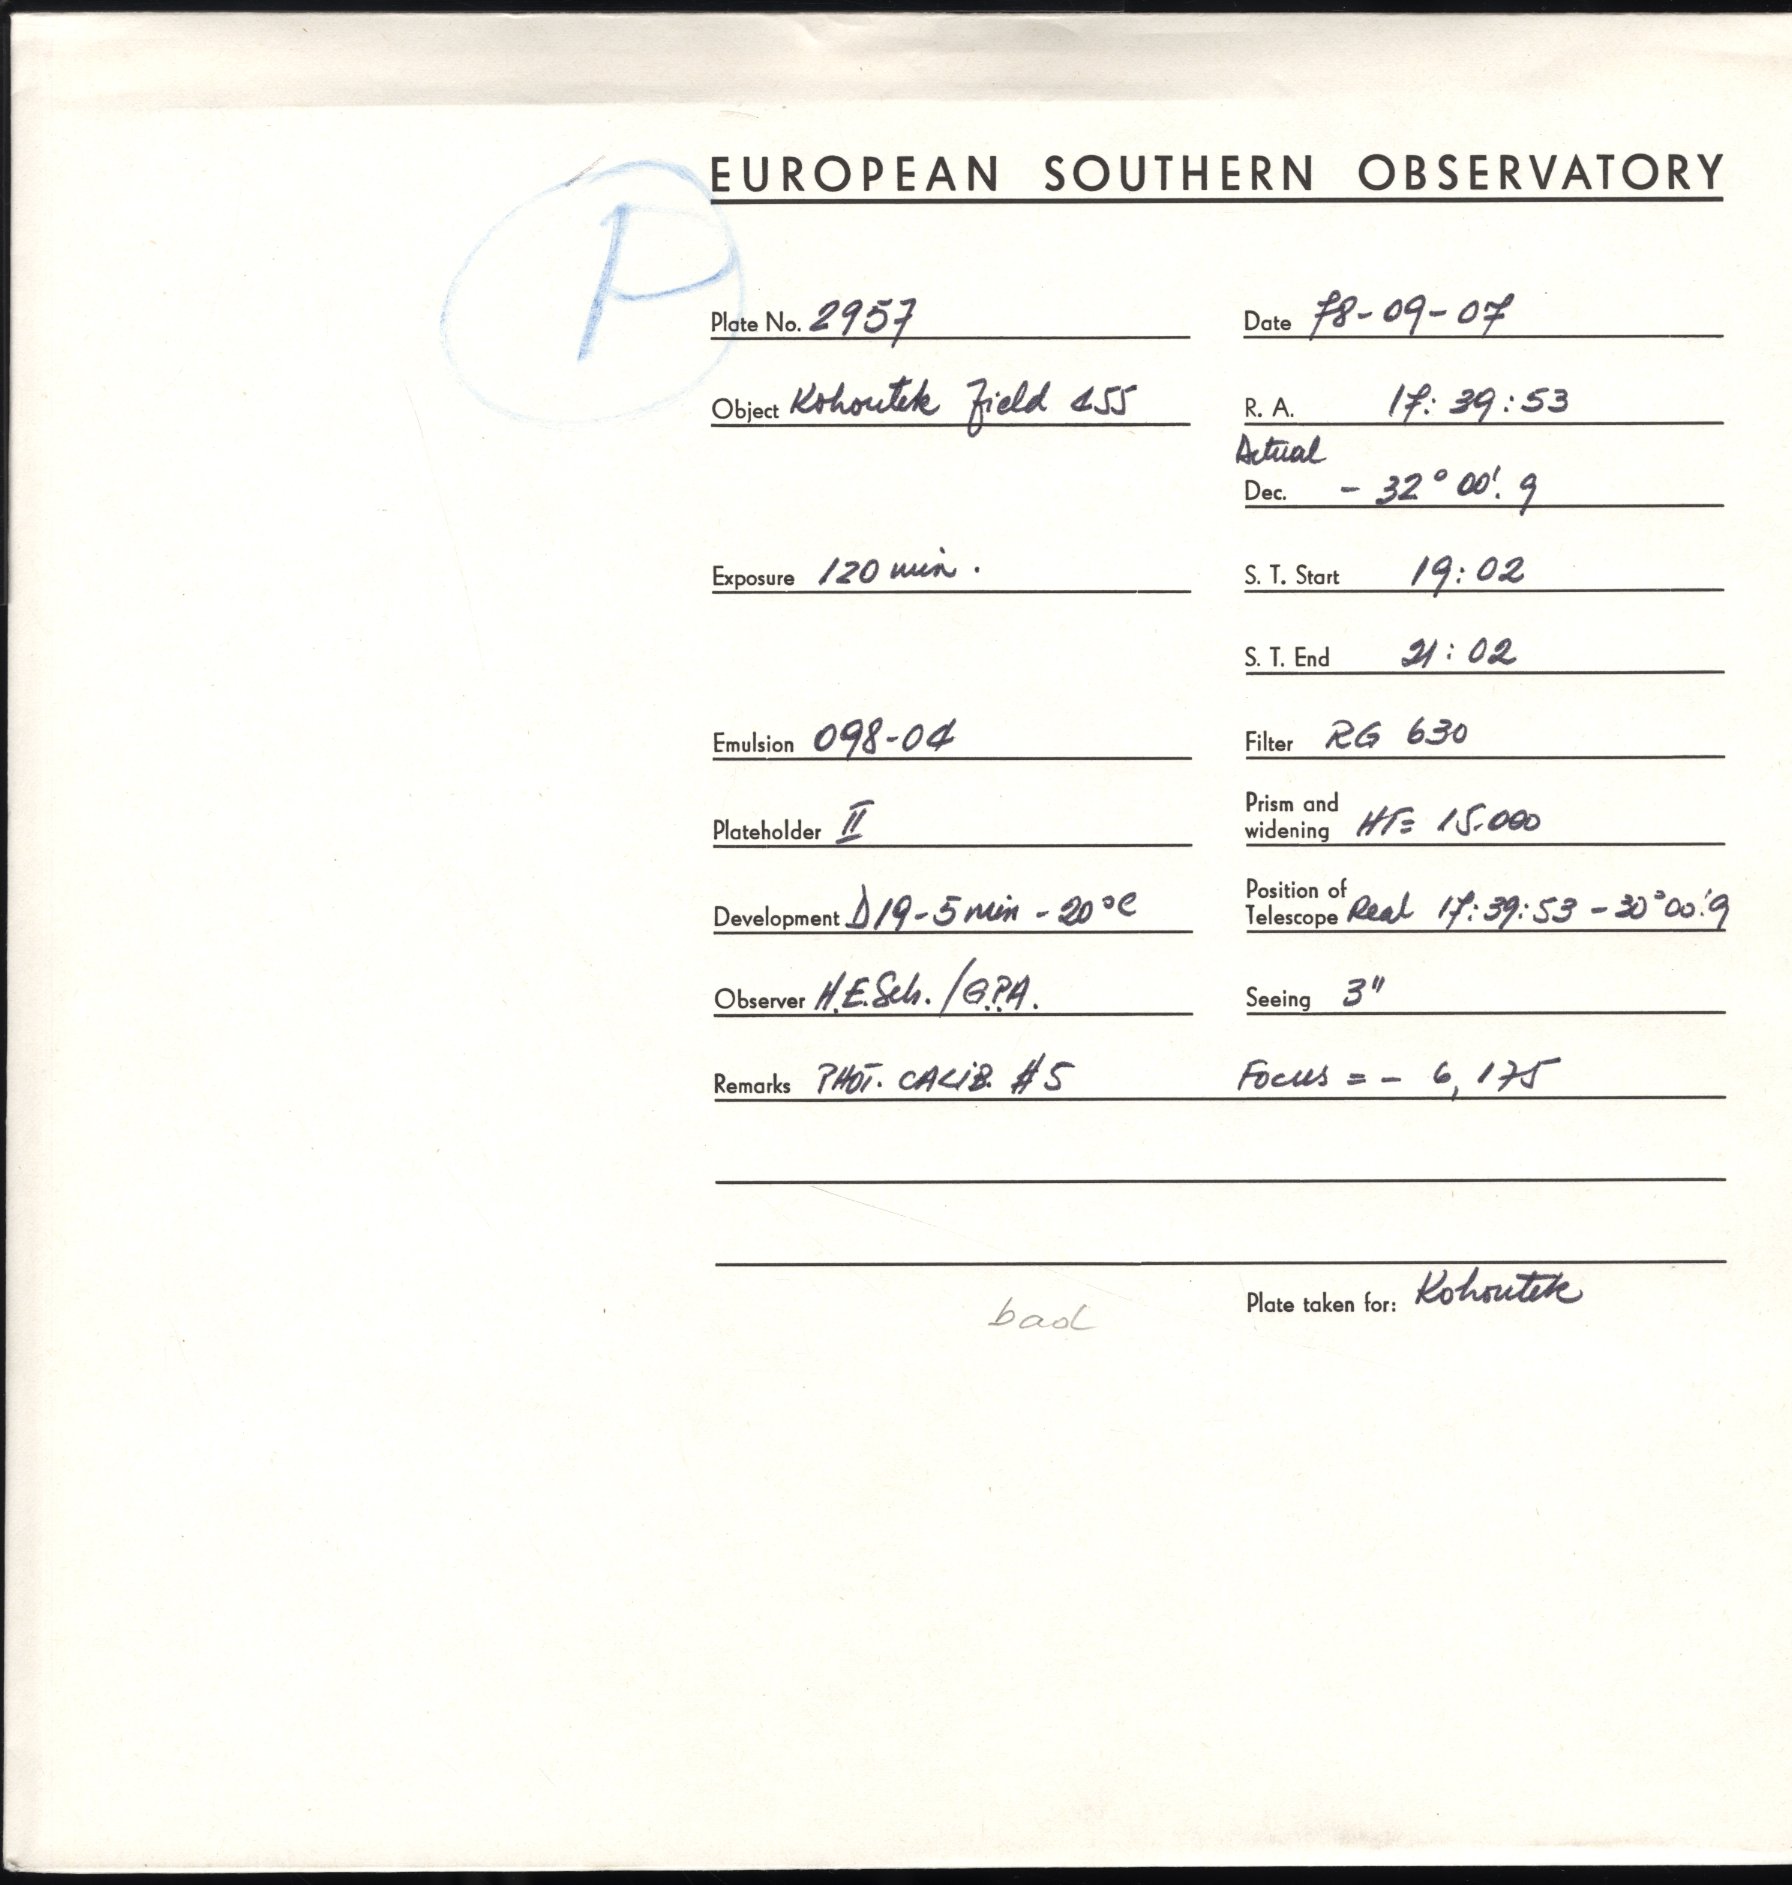 EUROPEAN SOUTHERN OBSERVATORY
P
Plate No. 2957 Date 78-09-07
Object Kohoutek Field 455 R. A. 17:39:53
Actual
Dec. - 32° 00'.9
Exposure 120 min. S. T. Start 19:02
S. T. End 21:02
Emulsion 098-04 Filter RG 630
Plateholder II Prism and widening HT= 15.000
Development D19-5min - 20°C Position of Telescope Real 17:39:53 - 30°00'.9
Observer H.E.Sch./G.P.A. Seeing 3"
Remarks PHOT. CALIB. #5 Focus = - 6,175
Plate taken for: Kohoutek
bad